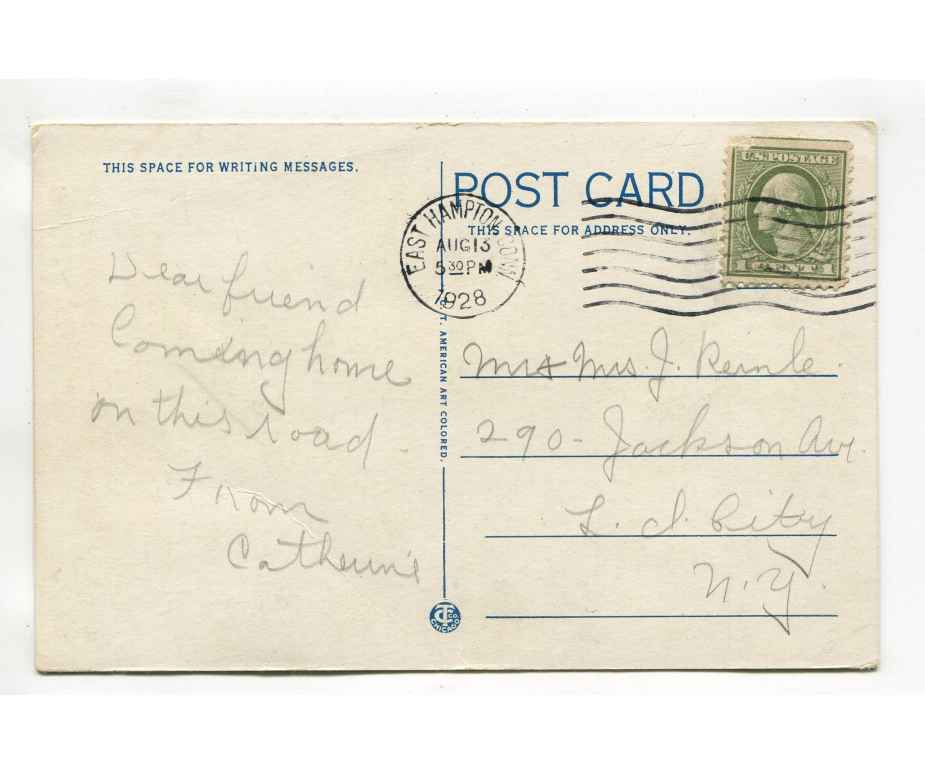 THIS SPACE FOR WRITING MESSAGES.
POST CARD
THIS SPACE FOR ADDRESS ONLY.
U.S. POSTAGE
1 CENT 1
EAST HAMPTON CONN.
AUG 13
5 30 PM
1928
Dear friend
Coming home
on this road.
From
Catherine
C. T. AMERICAN ART COLORED.
Mr & Mrs. J.
290 - Jackson Ave.
L. I. City
N. Y.
CT CO
CHICAGO